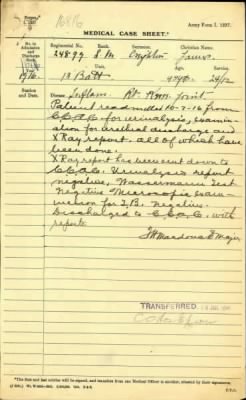 Army Form I. 1237.
MEDICAL CASE SHEET.*
No. in
Admission
and
Discharge
Book.
Regimental No.
Rank.
Surname.
Christian Name.
24899
James
Year
Age.
Service.
1916.
13 Batt
24/12
Station
and Date.
Disease
Inflam. Rt Knee Joint
Patient readmitted 16-7-16 from
C.C.A.C. for urinalysis, exami-
nation for urethral discharge and
XRay report. all of which have
been done.
XRay report has been sent down to
C.C.A.C. Urinalysis report
negative, Wassermann Test
Negative Microscopic exam-
ination for T.B. Negative.
Discharged to C.C.A.C. with
reports.
Major
TRANSFERRED
*The first and last articles will be signed, and transfers from one Medical Officer to another, attested by their signatures.
P.T.O.